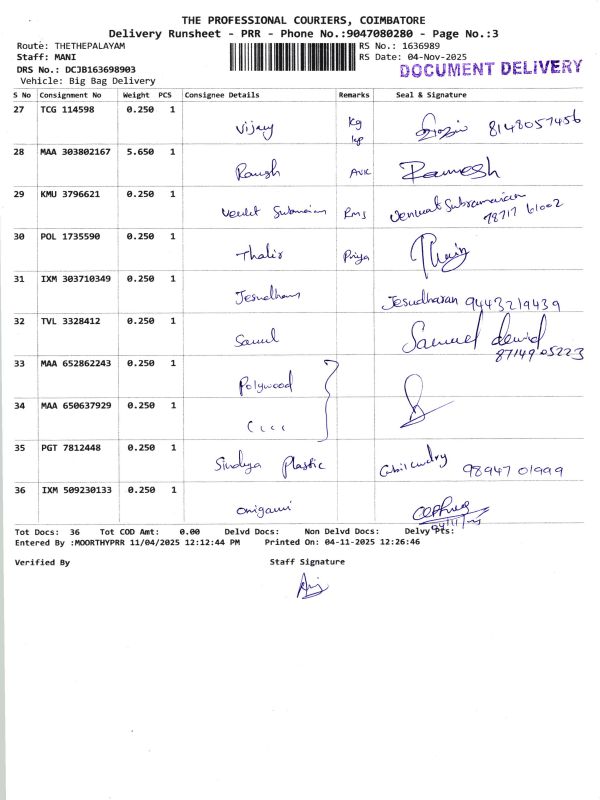 THE PROFESSIONAL COURIERS, COIMBATORE
Delivery Runsheet - PRR - Phone No.:9047080280 - Page No.:3
Route: THETHEPALAYAM RS No.: 1636989
Staff: MANI RS Date: 04-Nov-2025
DRS No.: DCJB163698903 DOCUMENT DELIVERY
Vehicle: Big Bag Delivery
S No Consignment No Weight PCS Consignee Details Remarks Seal & Signature
27 TCG 114598 0.250 1 Vijay Kg 8148057456
28 MAA 303802167 5.650 1 Ramesh
29 KMU 3796621 0.250 1 Rms Venkat Subramanian
78717 61002
30 POL 1735590 0.250 1 Thalir Priya
31 IXM 303710349 0.250 1 Jesudhans Jesudharan 9443219439
32 TVL 3328412 0.250 1 Samul Samuel
8714905223
33 MAA 652862243 0.250 1 Polywood
34 MAA 650637929 0.250 1
35 PGT 7812448 0.250 1 Plastic 98947 01999
36 IXM 509230133 0.250 1 Onigami
Tot Docs: 36 Tot COD Amt: 0.00 Delvd Docs: Non Delvd Docs: Delvy Pts:
Entered By :MOORTHYPRR 11/04/2025 12:12:44 PM Printed On: 04-11-2025 12:26:46
Verified By Staff Signature